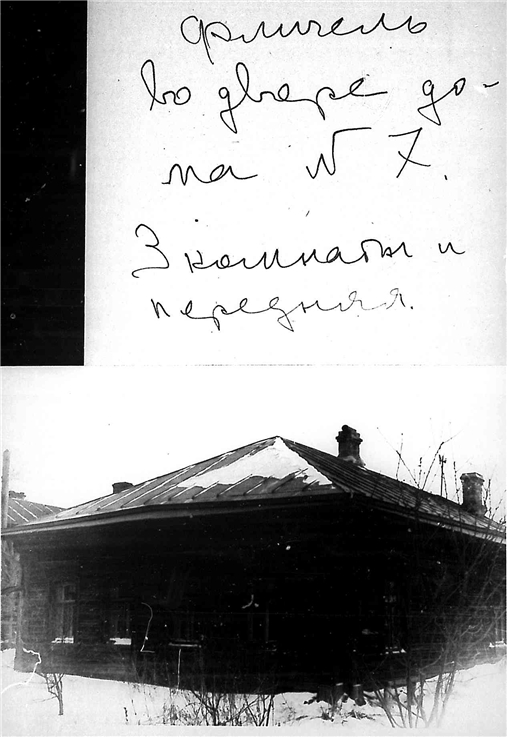 Флигель
во дворе до-
ма N 7.
3 комнаты и
передняя.